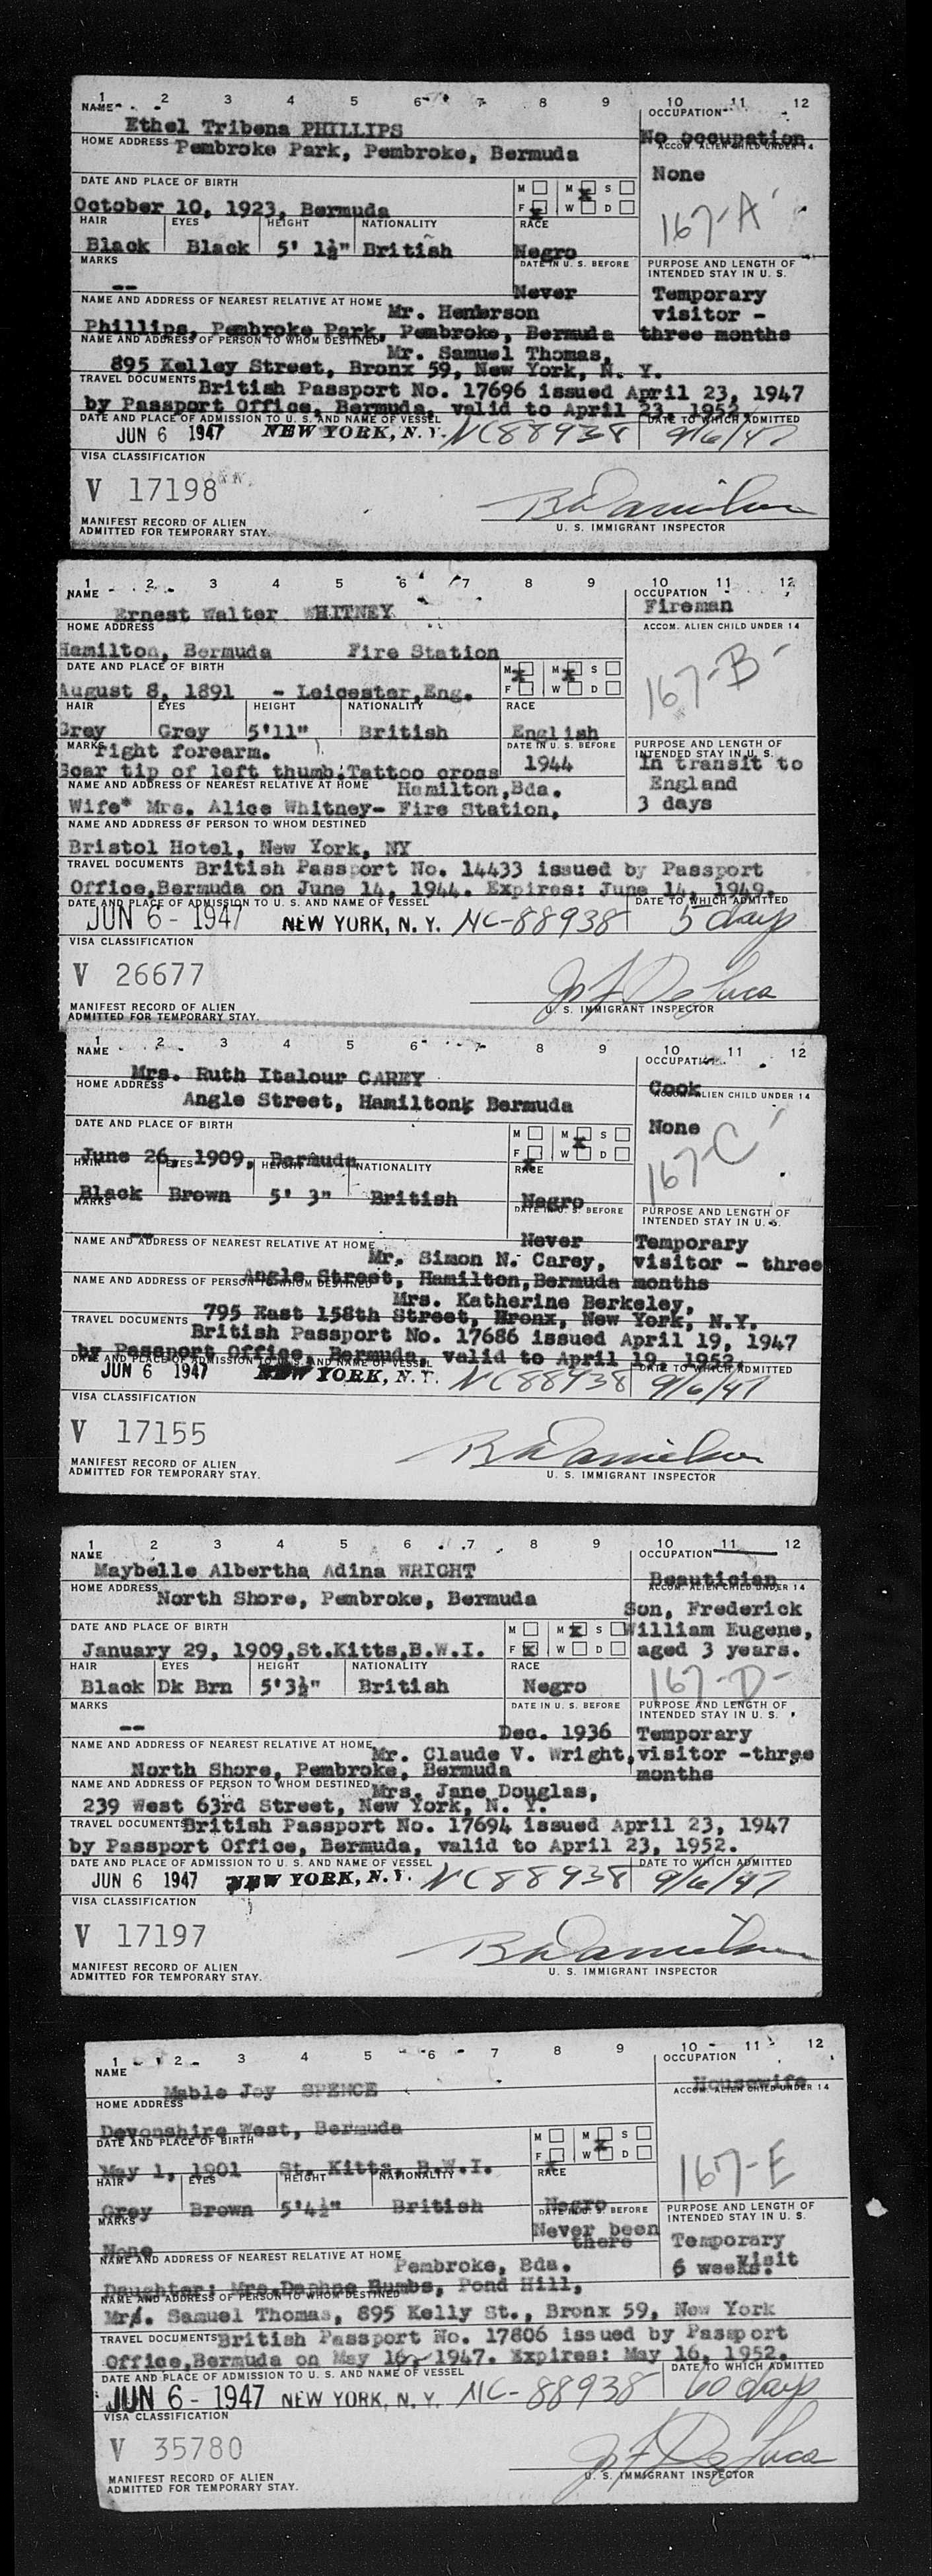 1 2 3 4 5 6 7 8 9 10 11 12
NAME OCCUPATION
Ethel Tribena PHILLIPS No occupation
HOME ADDRESS ACCOM. ALIEN CHILD UNDER 14
Pembroke Park, Pembroke, Bermuda
None
DATE AND PLACE OF BIRTH M M S
October 10, 1923, Bermuda F W D
167-A
HAIR EYES HEIGHT NATIONALITY RACE
Black Black 5' 1½" British Negro
MARKS DATE IN U. S. BEFORE PURPOSE AND LENGTH OF INTENDED STAY IN U. S.
-- Never Temporary
NAME AND ADDRESS OF NEAREST RELATIVE AT HOME Mr. Henderson visitor -
Phillips, Pembroke Park, Pembroke, Bermuda three months
NAME AND ADDRESS OF PERSON TO WHOM DESTINED Mr. Samuel Thomas,
895 Kelley Street, Bronx 59, New York, N. Y.
TRAVEL DOCUMENTS British Passport No. 17696 issued April 23, 1947
by Passport Office, Bermuda, valid to April 23, 1952.
DATE AND PLACE OF ADMISSION TO U. S. AND NAME OF VESSEL DATE TO WHICH ADMITTED
JUN 6 1947 NEW YORK, N. Y. NC88938 9/6/47
VISA CLASSIFICATION
V 17198
MANIFEST RECORD OF ALIEN
ADMITTED FOR TEMPORARY STAY.
U. S. IMMIGRANT INSPECTOR
1 2 3 4 5 6 7 8 9 10 11 12
NAME OCCUPATION
Ernest Walter WHITNEY Fireman
HOME ADDRESS ACCOM. ALIEN CHILD UNDER 14
Hamilton, Bermuda Fire Station
167-B
DATE AND PLACE OF BIRTH M M S
August 8, 1891 - Leicester,Eng. F W D
HAIR EYES HEIGHT NATIONALITY RACE
Grey Grey 5'11" British English
MARKS right forearm. DATE IN U. S. BEFORE PURPOSE AND LENGTH OF INTENDED STAY IN U. S.
Scar tip of left thumb.Tattoo cross 1944 In transit to
NAME AND ADDRESS OF NEAREST RELATIVE AT HOME Hamilton,Bda. England
Wife* Mrs. Alice Whitney- Fire Station, 3 days
NAME AND ADDRESS OF PERSON TO WHOM DESTINED
Bristol Hotel, New York, NY
TRAVEL DOCUMENTS British Passport No. 14433 issued by Passport
Office,Bermuda on June 14, 1944. Expires: June 14, 1949.
DATE AND PLACE OF ADMISSION TO U. S. AND NAME OF VESSEL DATE TO WHICH ADMITTED
JUN 6 - 1947 NEW YORK, N. Y. NC-88938 5 days
VISA CLASSIFICATION
V 26677
MANIFEST RECORD OF ALIEN
ADMITTED FOR TEMPORARY STAY.
U. S. IMMIGRANT INSPECTOR
1 2 3 4 5 6 7 8 9 10 11 12
NAME OCCUPATION
Mrs. Ruth Italour CAREY Cook
HOME ADDRESS ACCOM. ALIEN CHILD UNDER 14
Angle Street, Hamilton, Bermuda
None
DATE AND PLACE OF BIRTH M M S
June 26, 1909, Bermuda F W D
167-C
HAIR EYES HEIGHT NATIONALITY RACE
Black Brown 5' 3" British Negro
MARKS DATE IN U. S. BEFORE PURPOSE AND LENGTH OF INTENDED STAY IN U. S.
-- Never Temporary
NAME AND ADDRESS OF NEAREST RELATIVE AT HOME Mr. Simon N. Carey, visitor - three
Angle Street, Hamilton,Bermuda months
NAME AND ADDRESS OF PERSON TO WHOM DESTINED Mrs. Katherine Berkeley,
795 East 158th Street, Bronx, New York, N.Y.
TRAVEL DOCUMENTS British Passport No. 17686 issued April 19, 1947
by Passport Office, Bermuda, valid to April 19, 1952.
DATE AND PLACE OF ADMISSION TO U. S. AND NAME OF VESSEL DATE TO WHICH ADMITTED
JUN 6 1947 NEW YORK, N. Y. NC88938 9/6/47
VISA CLASSIFICATION
V 17155
MANIFEST RECORD OF ALIEN
ADMITTED FOR TEMPORARY STAY.
U. S. IMMIGRANT INSPECTOR
1 2 3 4 5 6 7 8 9 10 11 12
NAME OCCUPATION
Maybelle Albertha Adina WRIGHT Beautician
HOME ADDRESS ACCOM. ALIEN CHILD UNDER 14
North Shore, Pembroke, Bermuda Son, Frederick
DATE AND PLACE OF BIRTH M M S William Eugene,
January 29, 1909,St.Kitts,B.W.I. F W D aged 3 years.
HAIR EYES HEIGHT NATIONALITY RACE 167-D-
Black Dk Brn 5'3½" British Negro
MARKS DATE IN U. S. BEFORE PURPOSE AND LENGTH OF INTENDED STAY IN U. S.
-- Dec. 1936 Temporary
NAME AND ADDRESS OF NEAREST RELATIVE AT HOME Mr. Claude V. Wright, visitor -three
North Shore, Pembroke, Bermuda months
NAME AND ADDRESS OF PERSON TO WHOM DESTINED Mrs. Jane Douglas,
239 West 63rd Street, New York, N. Y.
TRAVEL DOCUMENTS British Passport No. 17694 issued April 23, 1947
by Passport Office, Bermuda, valid to April 23, 1952.
DATE AND PLACE OF ADMISSION TO U. S. AND NAME OF VESSEL DATE TO WHICH ADMITTED
JUN 6 1947 NEW YORK, N. Y. NC88938 9/6/47
VISA CLASSIFICATION
V 17197
MANIFEST RECORD OF ALIEN
ADMITTED FOR TEMPORARY STAY.
U. S. IMMIGRANT INSPECTOR
1 2 3 4 5 6 7 8 9 10 11 12
NAME OCCUPATION
Mable Joy SPENCE Housewife
HOME ADDRESS ACCOM. ALIEN CHILD UNDER 14
Devonshire West, Bermuda
DATE AND PLACE OF BIRTH M M S
May 1, 1901 St. Kitts, B.W.I. F W D
167-E
HAIR EYES HEIGHT NATIONALITY RACE
Grey Brown 5'4½" British Negro
MARKS DATE IN U. S. BEFORE PURPOSE AND LENGTH OF INTENDED STAY IN U. S.
None Never been there Temporary visit
NAME AND ADDRESS OF NEAREST RELATIVE AT HOME Pembroke, Bda. 6 weeks.
Daughter: Mrs.Daphne Bumbs, Pond Hill,
NAME AND ADDRESS OF PERSON TO WHOM DESTINED
Mrs. Samuel Thomas, 895 Kelly St., Bronx 59, New York
TRAVEL DOCUMENTS British Passport No. 17806 issued by Passport
Office,Bermuda on May 16, 1947. Expires: May 16, 1952.
DATE AND PLACE OF ADMISSION TO U. S. AND NAME OF VESSEL DATE TO WHICH ADMITTED
JUN 6 - 1947 NEW YORK, N. Y. NC-88938 60 days
VISA CLASSIFICATION
V 35780
MANIFEST RECORD OF ALIEN
ADMITTED FOR TEMPORARY STAY.
U. S. IMMIGRANT INSPECTOR